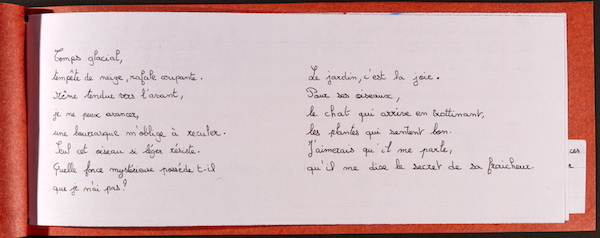 Temps glacial,
tempête de neige, rafale coupante.
Même tendue vers l'avant,
je ne peux avancer,
une bourrasque m'oblige à reculer.
Seul cet oiseau si léger résiste.
Quelle force mystérieuse possède t-il
que je n'ai pas?
Le jardin, c'est la joie.
Pour ses oiseaux,
le chat qui arrive en trottinant,
les plantes qui sentent bon.
J'aimerais qu'il me parle,
qu'il me dise le secret de sa fraîcheur.